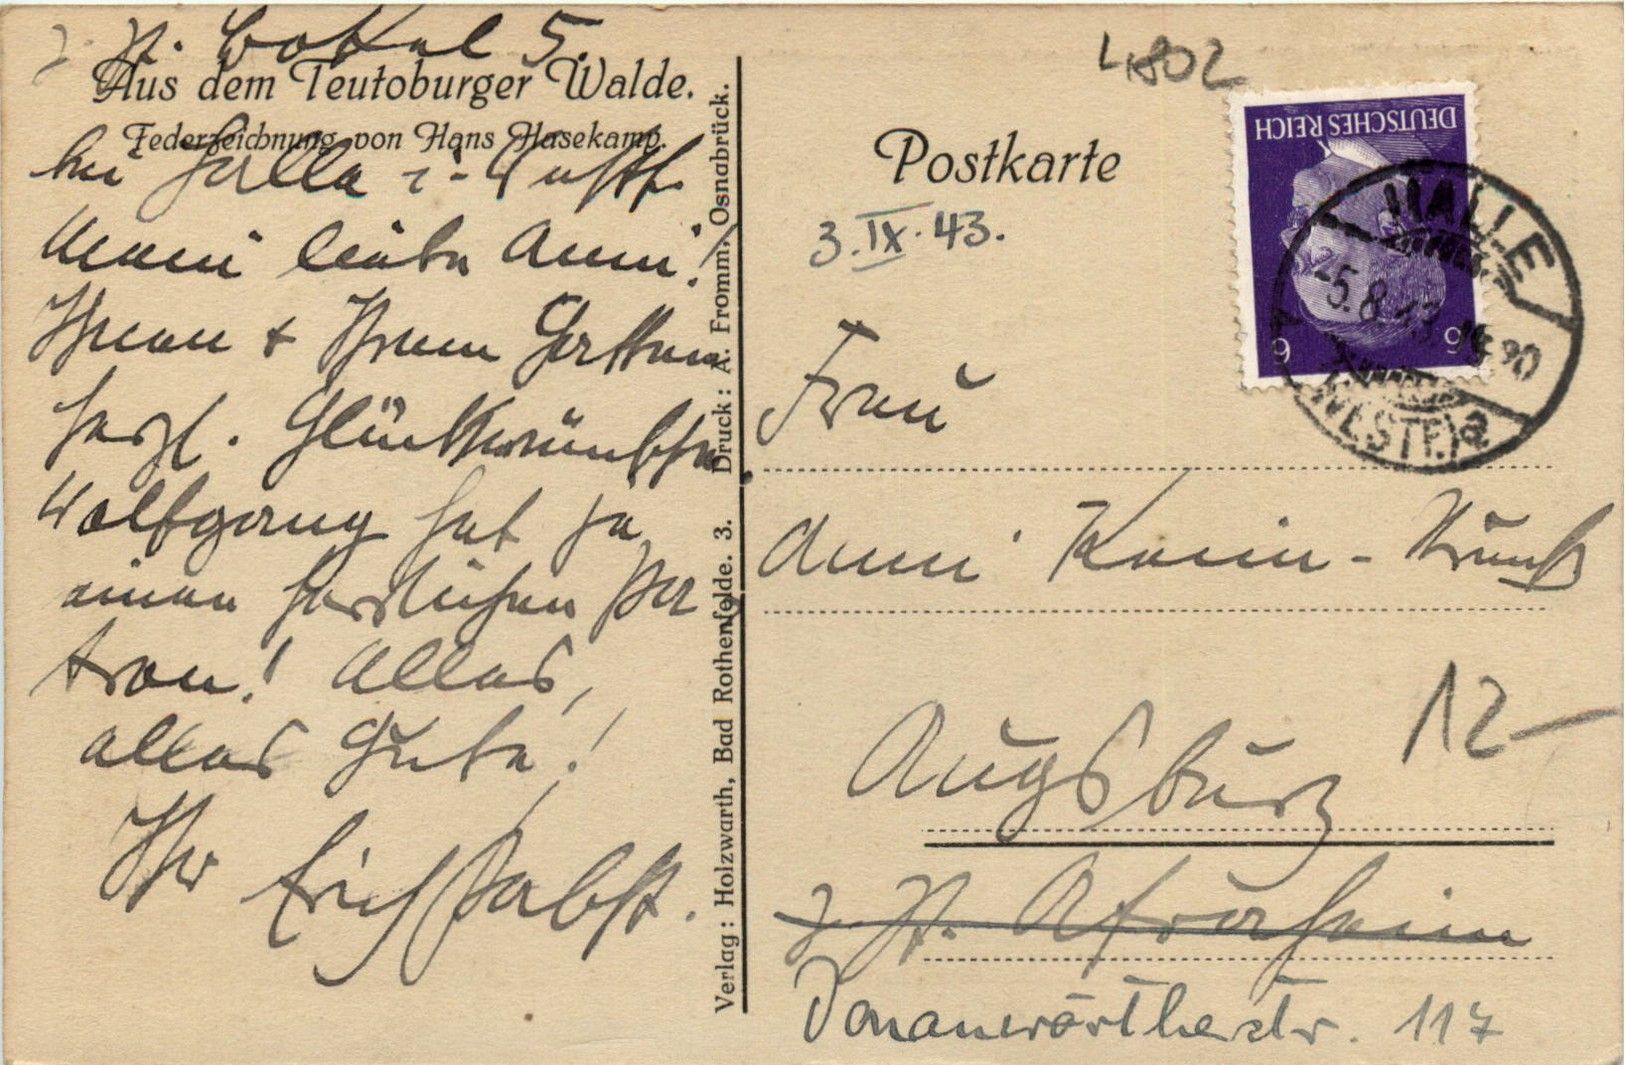 z. Zt. Bokel 5.
Aus dem Teutoburger Walde.
Federzeichnung von Hans Hasekamp.
bei Halle i. Westf.
Meine liebe Anni!
Ihnen + Ihrem Gatten
herzl. Glückwünsche.
Wolfgang hat ja
einen herrlichen Pa
tron! Alles,
alles Gute!
Ihr Erich Pabst.
Verlag: Holzwarth, Bad Rothenfelde. 3. Druck: A. Fromm, Osnabrück.
4802
Postkarte
3.IX.43.
DEUTSCHES REICH
6 6
HALLE
-5.8.43
(WESTF.) a
Frau
Anni
Augsburg
12-
z. Zt.
Donauwörtherstr. 117